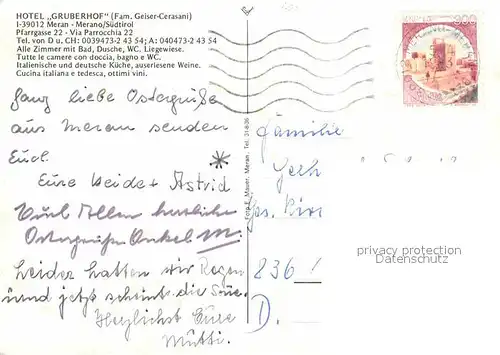 HOTEL „GRUBERHOF" (Fam. Geiser-Cerasani)
I-39012 Meran - Merano/Südtirol
Pfarrgasse 22 - Via Parrocchia 22
Tel. von D u. CH: 0039473-2 43 54; A: 040473-2 43 54
Alle Zimmer mit Bad, Dusche, WC. Liegewiese.
Tutte le camere con doccia, bagno e WC.
Italienische und deutsche Küche, auserlesene Weine.
Cucina italiana e tedesca, ottimi vini.
Ganz liebe Ostergrüße
aus Meran senden
Euch
Eure beiden Astrid
Euch Allen herzliche
Ostergrüße Onkel M.
Leider hatten wir Regen
und jetzt scheint die Sonne.
Herzlichst Eure
Mutti.
Foto E. Mauer, Meran, Tel.
Familie
836!
D.
privacy protection
Datenschutz